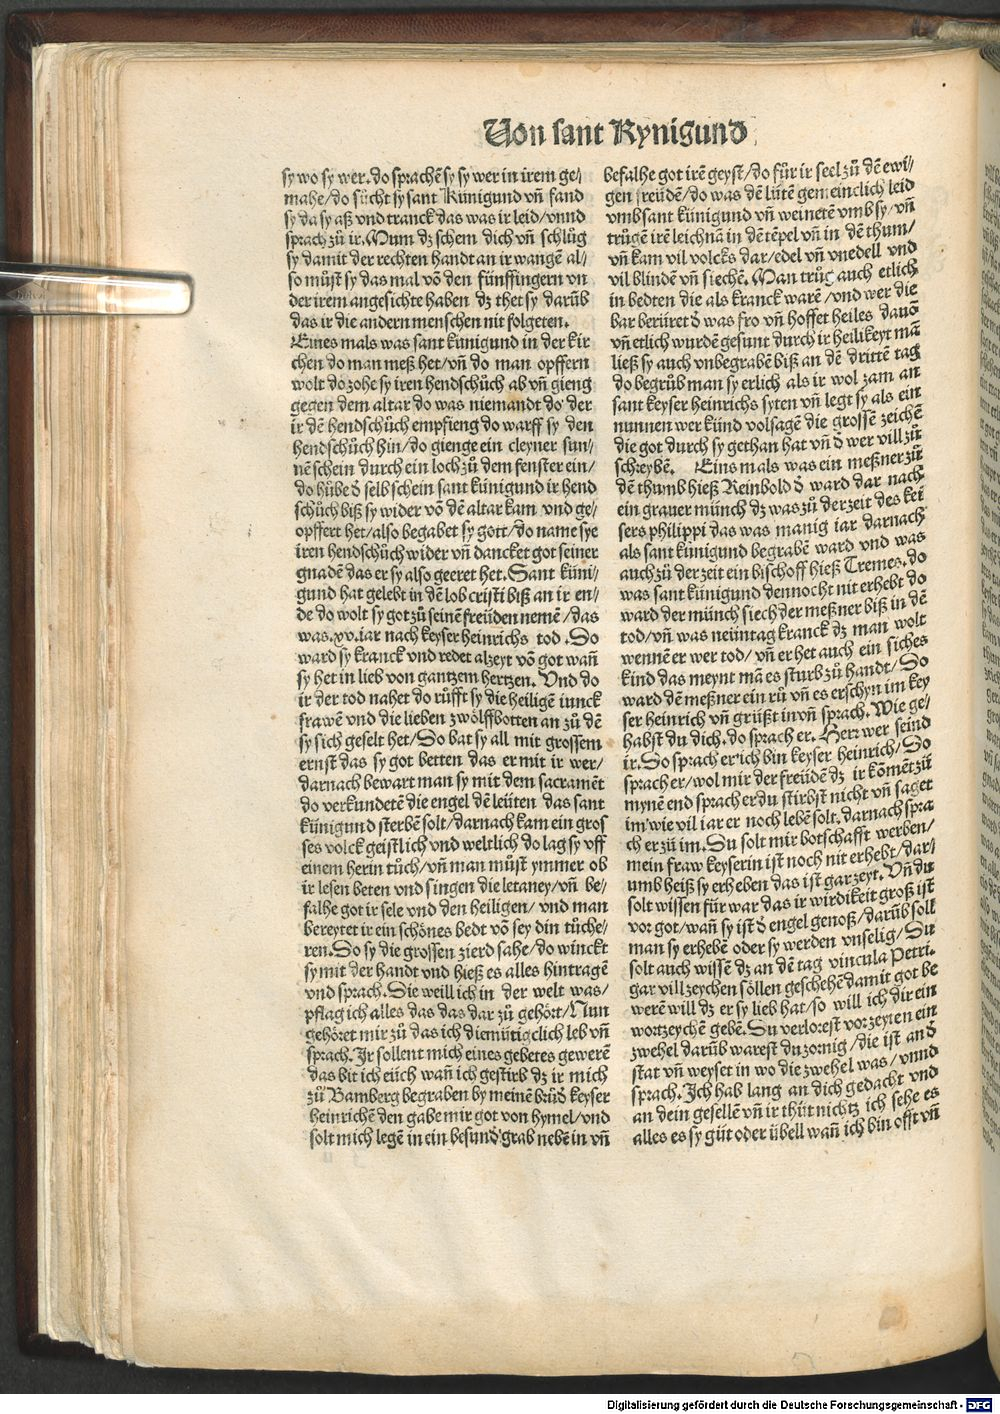 Von sant Kynigund
sy wo sy wer. do sprachē sy sy wer in irem ge⸗
mahe/do sůcht sy sant Künigund vñ fand
sy da sy aß vnd tranck das was ir leid/vnnd
sprach zů ir. Mum dz schem dich vñ schlůg
sy damit der rechten handt an ir wangē al⸗
so můst sy das mal vō den fünffingern vn
der irem angesichte haben dz thet sy darūb
das ir die andern menschen nit folgeten.
Eines mals was sant künigund in der kir
chen do man meß het/vñ do man opffern
wolt do zohe sy iren hendschůch ab vñ gieng
gegen dem altar do was niemandt do der
ir dē hendschůch empfieng do warff sy den
hendschůch hin/do gienge ein cleyner sun⸗
nē schein durch ein loch zů dem fenster ein/
do hůbe d̄ selb schein sant künigund ir hend
schůch biß sy wider vō dē altar kam vnd ge⸗
opffert het/also begabet sy gott/do name sye
iren hendschůch wider vñ dancket got seiner
gnadē das er sy also geeret het. Sant küni⸗
gund hat gelebt in dē lob cristi biß an ir en⸗
de do wolt sy got zů seinē freüden nemē/das
was .xv. iar nach keyser heinrichs tod. So
ward sy kranck vnd redet alzeyt vō got wañ
sy het in lieb von gantzem hertzen. Vnd do
ir der tod nahet do růfft sy die heiligē iunck
frawē vnd die lieben zwölffbotten an zů dē
sy sich geselt het/So bat sy all mit grossem
ernst das sy got betten das er mit ir wer/
darnach bewart man sy mit dem sacramēt
do verkundetē die engel dē leüten das sant
künigund sterbē solt/darnach kam ein gros
ses volck geistlich vnd weltlich do lag sy vff
einem herin tůch/vñ man můst ymmer ob
ir lesen beten vnd singen die letaney/vñ be⸗
falhe got ir sele vnd den heiligen/vnd man
bereytet ir ein schönes bedt vō seydin tůche⸗
ren. So sy die grossen zierd sahe/do winckt
sy mit der handt vnd hieß es alles hintragē
vnd sprach. Die weill ich in der welt was/
pflag ich alles das das dar zů gehört/Nun
gehöret mir zů das ich diemütigclich leb vñ
sprach. Ir sollent mich eines gebetes gewerē
das bit ich eüch wañ ich gestirb dz ir mich
zů Bamberg begraben by meinē brůd̄ keyser
heinrichē den gabe mir got von hymel/vnd
solt mich legē in ein besund̄ grab nebē in vñ
befalhe got irē geyst/do für ir seel zů dē ewi⸗
gen freüdē/do was dē lütē gemeinclich leid
vmb sant künigund vñ weinetē vmb sy/vñ
trůgē irē leichnā in dē tēpel vñ in dē thum/
vñ kam vil volcks dar/edel vñ vnedell vnd
vil blindē vñ siechē. Man trůg auch etlich
in bedten die als kranck warē/vnd wer die
bar berüret d̄ was fro vñ hoffet heiles dauō
vñ etlich wurdē gesunt durch ir heilikeyt mā
ließ sy auch vnbegrabē biß an dē drittē tag
do begrůb man sy erlich als ir wol zam an
sant keyser heinrichs syten vñ legt sy als ein
nunnen wer künd volsagē die grossē zeichē
die got durch sy gethan hat vñ d̄ wer vill zů
schreybē. Eins mals was ein meßner zů
dē thumb hieß Reinbold d̄ ward dar nach
ein grauer münch dz was zů der zeit des kei
sers philippi das was manig iar darnach
als sant kunigund begrabē ward vnd was
auch zů der zeit ein bischoff hieß Tremes. do
was sant künigund dennocht nit erhebt do
ward der münch siech der meßner biß in dē
tod/vñ was neün tag kranck dz man wolt
wennē er wer tod/vñ er het auch ein siches
kind das meynt mā es sturb zů handt/So
ward dē meßner ein rů vñ es erschyn im key
ser heinrich vñ grüßt in vñ sprach. Wie ge⸗
habst du dich. do sprach er. Herr wer seind
ir. So sprach er ich bin keyser heinrich/So
sprach er/wol mir der freüdē dz ir kōmēt zů
mynē end sprach er du stirbst nicht vñ saget
im wie vil iar er noch lebē solt. darnach spra
ch er zů im. Du solt mir botschafft werben/
mein fraw keyserin ist noch nit erhebt/dar⸗
umb heiß sy erheben das ist gar zeyt. Vñ du
solt wissen für war das ir wirdikeit groß ist
vor got/wañ sy ist d̄ engel genoß/darūb soll
man sy erhebē oder sy werden vnselig/Du
solt auch wissē dz an dē tag vincula Petri.
gar vill zeychen söllen geschehē damit got be
werē will dz er sy lieb hat/so will ich dir ein
wortzeychē gebē. Du verlorest vor zeyten ein
zwehel darūb warest du zornig/die ist an d̄
stat vñ weyset in wo die zwehel was/vnnd
sprach. Ich hab lang an dich gedacht vnd
an dein gesellē vñ ir thüt nichtz ich sehe es
alles es sy güt oder übell wañ ich bin offt vñ
Digitalisierung gefördert durch die Deutsche Forschungsgemeinschaft - DFG